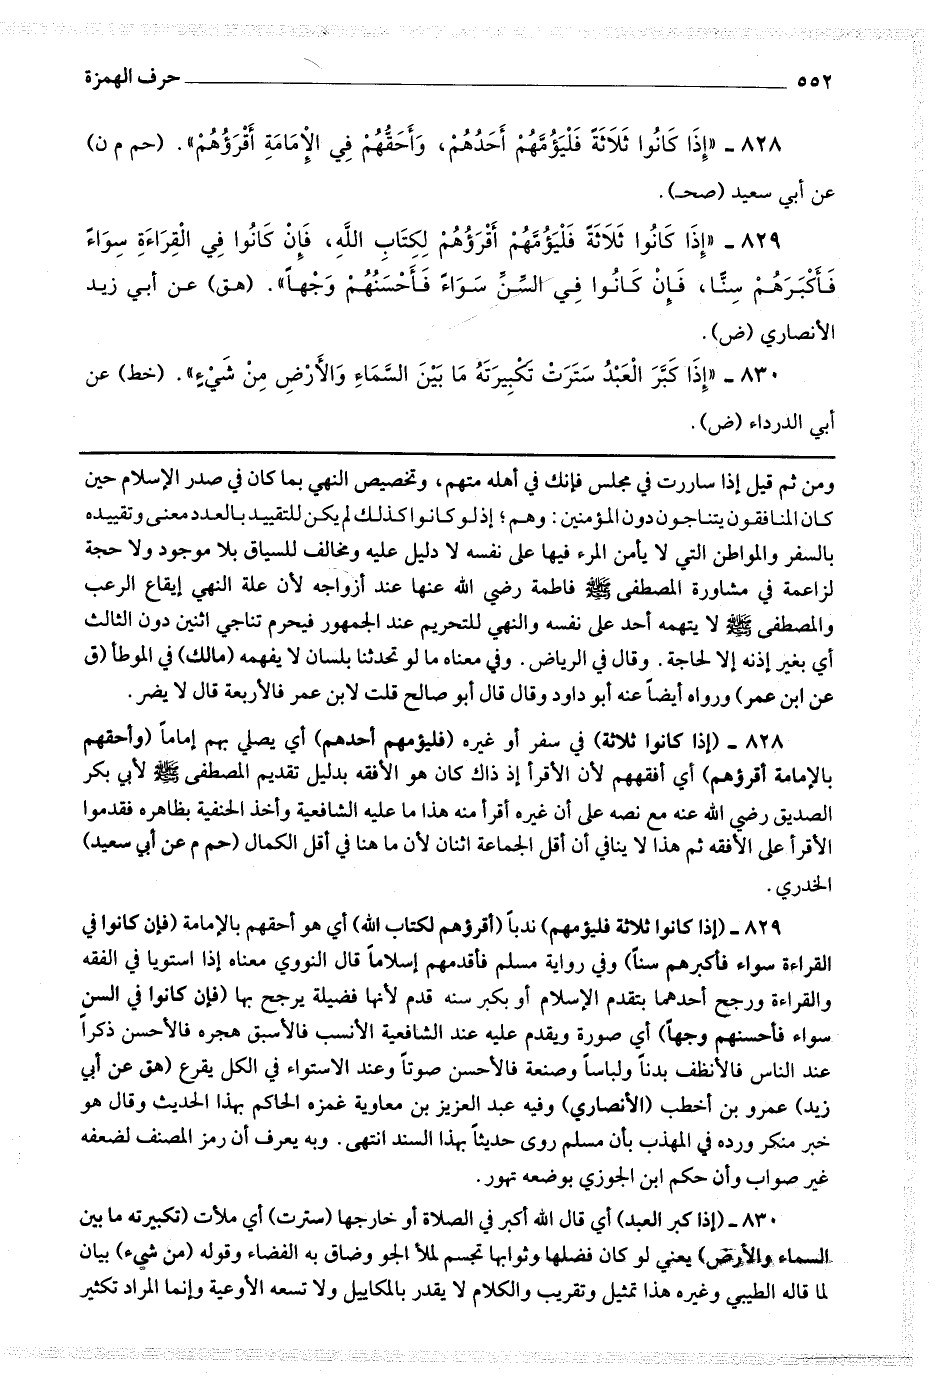 ٥٥٢ حرف الهمزة
٨٢٨ ـ «إِذَا كَانُوا ثَلَاثَةً فَلْيَؤُمَّهُمْ أَحَدُهُمْ، وَأَحَقُّهُمْ فِي الْإِمَامَةِ أَقْرَؤُهُمْ». (حم م ن)
عن أبي سعيد (صحـ).
٨٢٩ ـ «إِذَا كَانُوا ثَلَاثَةً فَلْيَؤُمَّهُمْ أَقْرَؤُهُمْ لِكِتَابِ اللَّهِ، فَإِنْ كَانُوا فِي الْقِرَاءَةِ سِوَاءً
فَأَكْبَرَهُمْ سِنًّا، فَإِنْ كَانُوا فِي السِّنِّ سَوَاءً فَأَحْسَنُهُمْ وَجْهاً». (هق) عن أبي زيد
الأنصاري (ض).
٨٣٠ ـ «إِذَا كَبَّرَ الْعَبْدُ سَتَرَتْ تَكْبِيرَتَهُ مَا بَيْنَ السَّمَاءِ وَالْأَرْضِ مِنْ شَيْءٍ». (خط) عن
أبي الدرداء (ض).
ومن ثم قيل إذا ساررت في مجلس فإنك في أهله متهم، وتخصيص النهي بما كان في صدر الإسلام حين
كان المنافقون يتناجون دون المؤمنين: وهم؛ إذ لو كانوا كذلك لم يكن للتقييد بالعدد معنى وتقييده
بالسفر والمواطن التي لا يأمن المرء فيها على نفسه لا دليل عليه ومخالف للسياق بلا موجود ولا حجة
لزاعمة في مشاورة المصطفى ﷺ فاطمة رضي الله عنها عند أزواجه لأن علة النهي إيقاع الرعب
والمصطفى ﷺ لا يتهمه أحد على نفسه والنهي للتحريم عند الجمهور فيحرم تناجي اثنين دون الثالث
أي بغير إذنه إلا لحاجة. وقال في الرياض. وفي معناه ما لو تحدثنا بلسان لا يفهمه (مالك) في الموطأ (ق
عن ابن عمر) ورواه أيضاً عنه أبو داود وقال قال أبو صالح قلت لابن عمر فالأربعة قال لا يضر.
٨٢٨ ـ (إذا كانوا ثلاثة) في سفر أو غيره (فليؤمهم أحدهم) أي يصلي بهم إماماً (وأحقهم
بالإمامة أقرؤهم) أي أفقههم لأن الأقرأ إذ ذاك كان هو الأفقه بدليل تقديم المصطفى ﷺ لأبي بكر
الصديق رضي الله عنه مع نصه على أن غيره أقرأ منه هذا ما عليه الشافعية وأخذ الحنفية بظاهره فقدموا
الأقرأ على الأفقه ثم هذا لا ينافي أن أقل الجماعة اثنان لأن ما هنا في أقل الكمال (حم م عن أبي سعيد)
الخدري.
٨٢٩ ـ (إذا كانوا ثلاثة فليؤمهم) ندباً (أقرؤهم لكتاب الله) أي هو أحقهم بالإمامة (فإن كانوا في
القراءة سواء فأكبرهم سناً) وفي رواية مسلم فأقدمهم إسلاماً قال النووي معناه إذا استويا في الفقه
والقراءة ورجح أحدهما بتقدم الإسلام أو بكبر سنه قدم لأنها فضيلة يرجح بها (فإن كانوا في السن
سواء فأحسنهم وجهاً) أي صورة ويقدم عليه عند الشافعية الأنسب فالأسبق هجره فالأحسن ذكراً
عند الناس فالأنظف بدناً ولباساً وصنعة فالأحسن صوتاً وعند الاستواء في الكل يقرع (هق عن أبي
زيد) عمرو بن أخطب (الأنصاري) وفيه عبد العزيز بن معاوية غمزه الحاكم بهذا الحديث وقال هو
خبر منكر ورده في المهذب بأن مسلم روى حديثاً بهذا السند انتهى. وبه يعرف أن رمز المصنف لضعفه
غير صواب وأن حكم ابن الجوزي بوضعه تهور.
٨٣٠ ـ (إذا كبر العبد) أي قال الله أكبر في الصلاة أو خارجها (سترت) أي ملأت (تكبيرته ما بين
السماء والأرض) يعني لو كان فضلها وثوابها تجسم لملأ الجو وضاق به الفضاء وقوله (من شيء) بيان
لما قاله الطيبي وغيره هذا تمثيل وتقريب والكلام لا يقدر بالمكاييل ولا تسعه الأوعية وإنما المراد تكثير